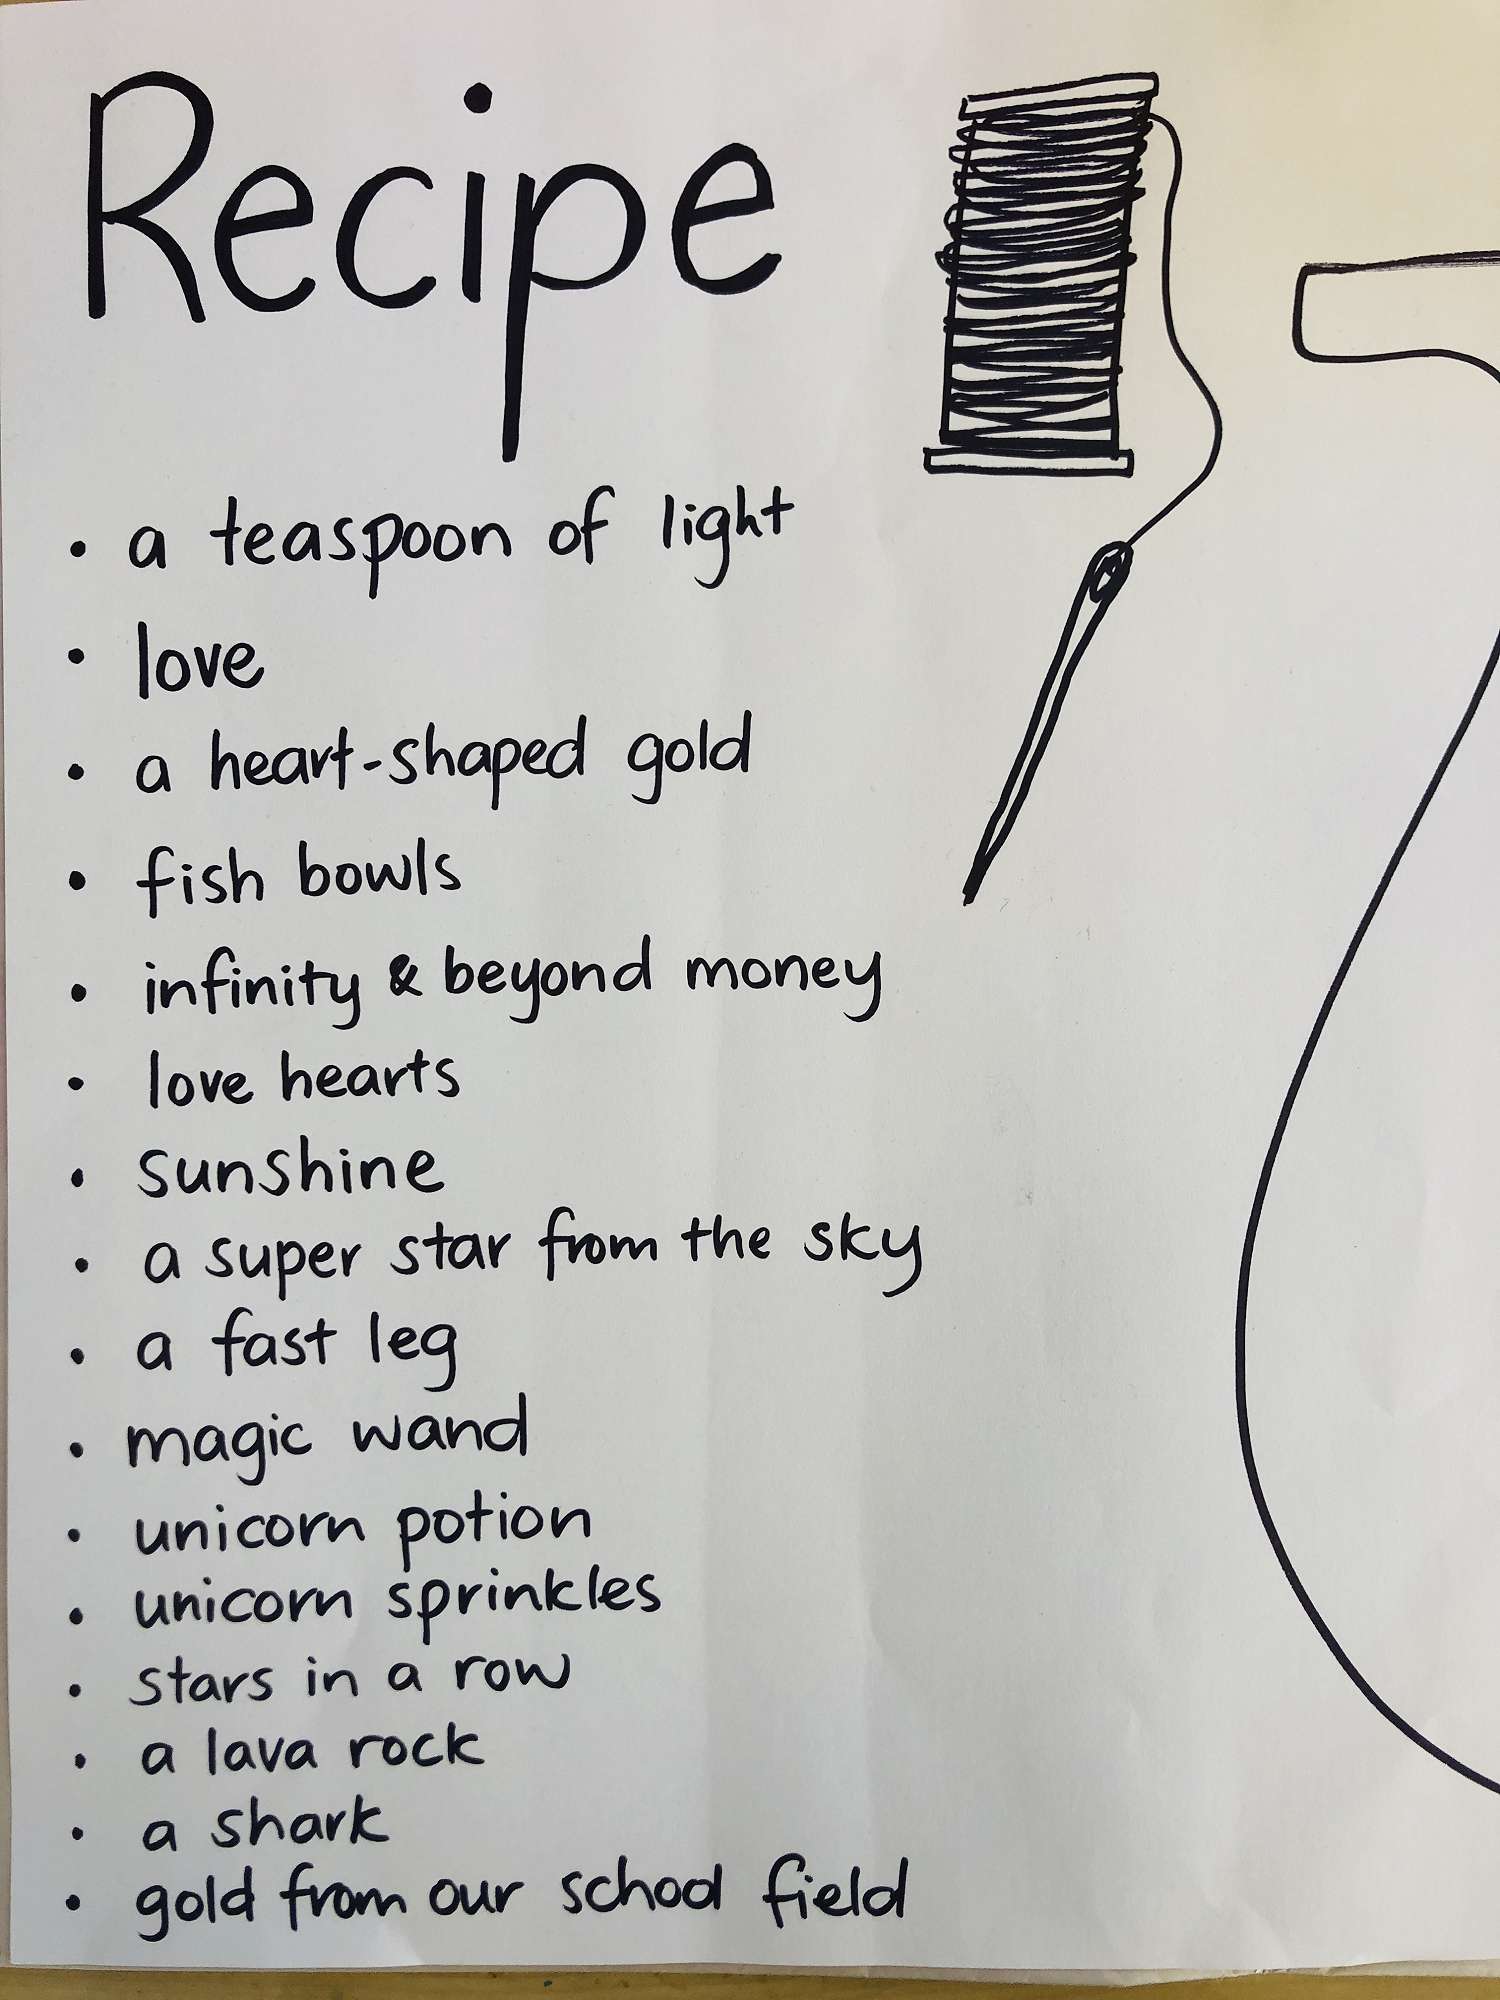 Recipe
• a teaspoon of light
• love
• a heart-shaped gold
• fish bowls
• infinity & beyond money
• love hearts
• sunshine
• a super star from the sky
• a fast leg
• magic wand
• unicorn potion
• unicorn sprinkles
• stars in a row
• a lava rock
• a shark
• gold from our school field